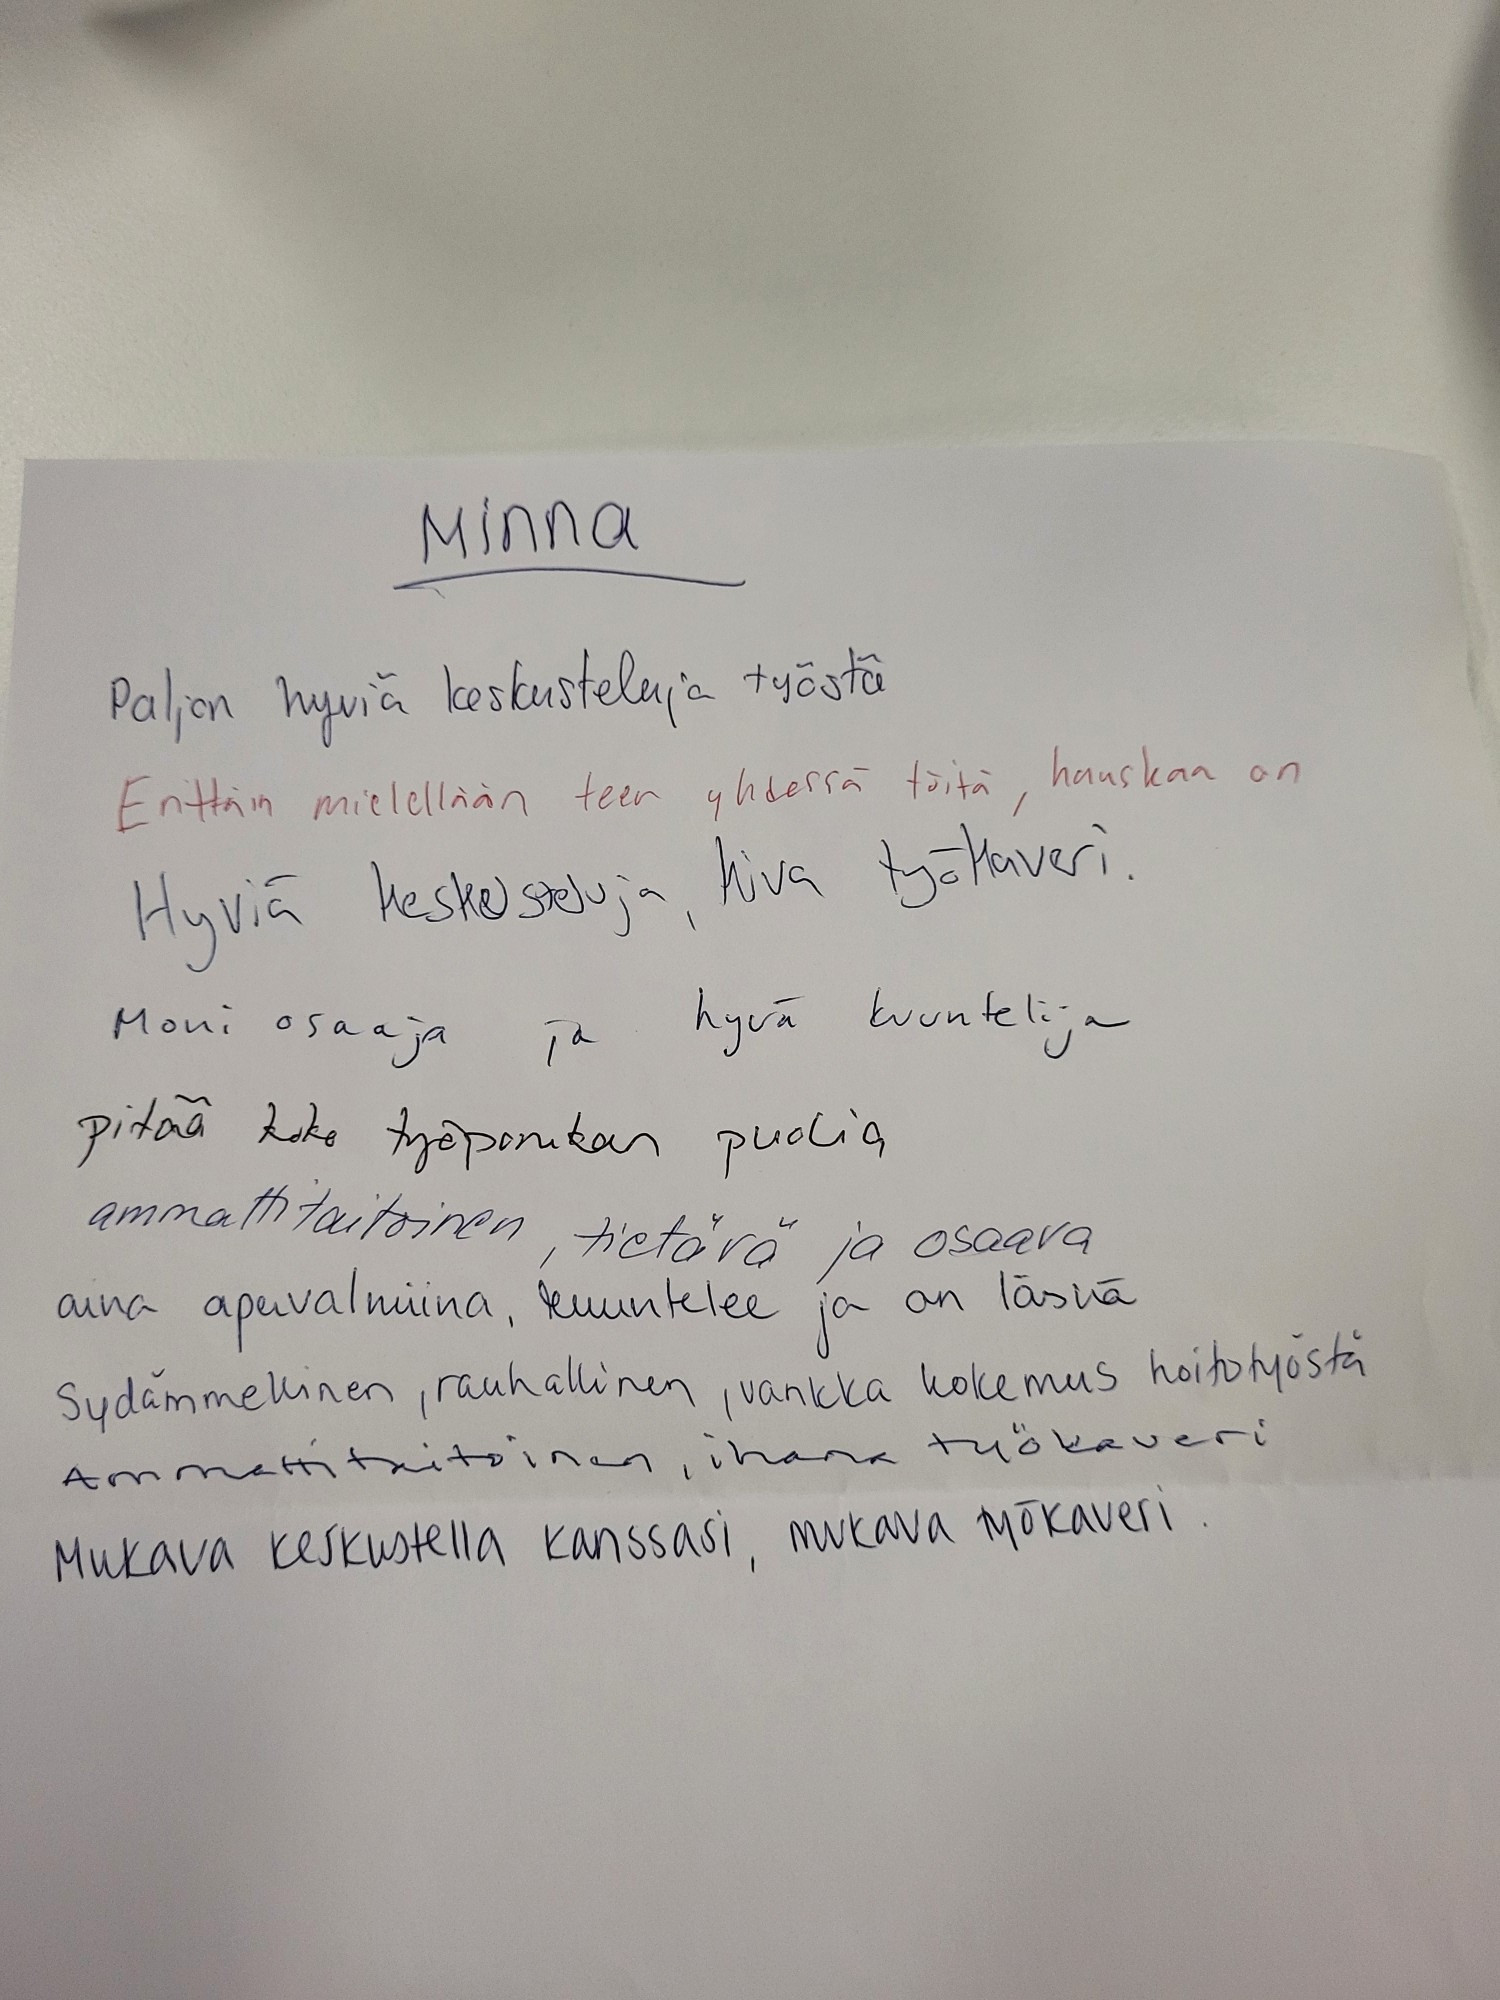 Minna
Paljon hyviä keskusteluja työstä
Erittäin mielellään teen yhdessä töitä, hauskaa on
Hyviä keskusteluja, kiva työkaveri.
Moni osaaja ja hyvä kuuntelija
pitää koko työporukan puolia
ammattitaitoinen, tietävä ja osaava
aina apuvalmiina, kuuntelee ja on läsnä
Sydämmellinen, rauhallinen, vankka kokemus hoitotyöstä
Ammattitaitoinen, ihana työkaveri
Mukava keskustella kanssasi, mukava työkaveri.